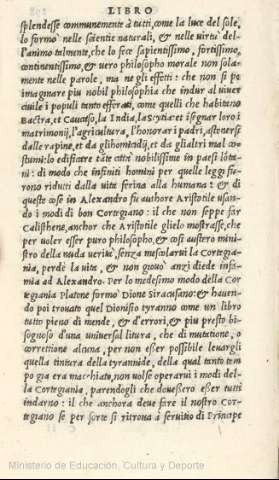 LIBRO
splendesse communemente à tutti, come la luce del sole,
lo formò nelle scientie naturali, & nelle virtu' del-
l'animo talmente, che lo fece sapientissimo, fortissimo,
continentissimo, & uero philosopho morale non sola-
mente nelle parole, ma ne gli effetti: che non si po
imaginare piu nobil philosophia che indur al uiuer
ciuile i populi tanto efferati, come quelli che habitano
Bactra, et Caucaso, la India, la Scytia: et isegnar loro i
matrimonij, l'agricultura, l'honorar i padri, astenersi
dalle rapine, et da gli homicidij, et da gli altri mal co
stumi: lo edificare tāte città nobilissime in paesi lōta-
ni: di modo che infiniti homini per quelle leggi fu-
rono ridutti dalla uita ferina alla humana: & di
queste cose in Alexandro fu authore Aristotile usan-
do i modi di bon Cortegiano: il che non seppe far
Calisthene, anchor che Aristotile glielo mostrasse, che
per uoler esser puro philosopho, & cosi austero mini-
stro della nuda uerità, senza mescolarui la Cortegia-
nia, perdè la uita, & non giouò anzi diede infa-
mia ad Alexandro. Per lo medesimo modo della Cor
tegiania Platone formò Dione Siracusano: & hauen-
do poi trouato quel Dionisio tyranno come un libro
tutto pieno di mende, & d'errori, & piu presto bi-
sognoso d'una uniuersal litura, che di mutatione, o
correttione alcuna, per non esser possibile leuargli
quella tintura della tyrannide, della qual tanto tem
po gia era machiato, non uolse operarui i modi del-
la Cortegiania, parendogli che douessero esser tutti
indarno: il che anchora deue fare il nostro Cor-
tegiano se per sorte si ritroua à seruitio di Principe
Ministerio de Educación, Cultura y Deporte